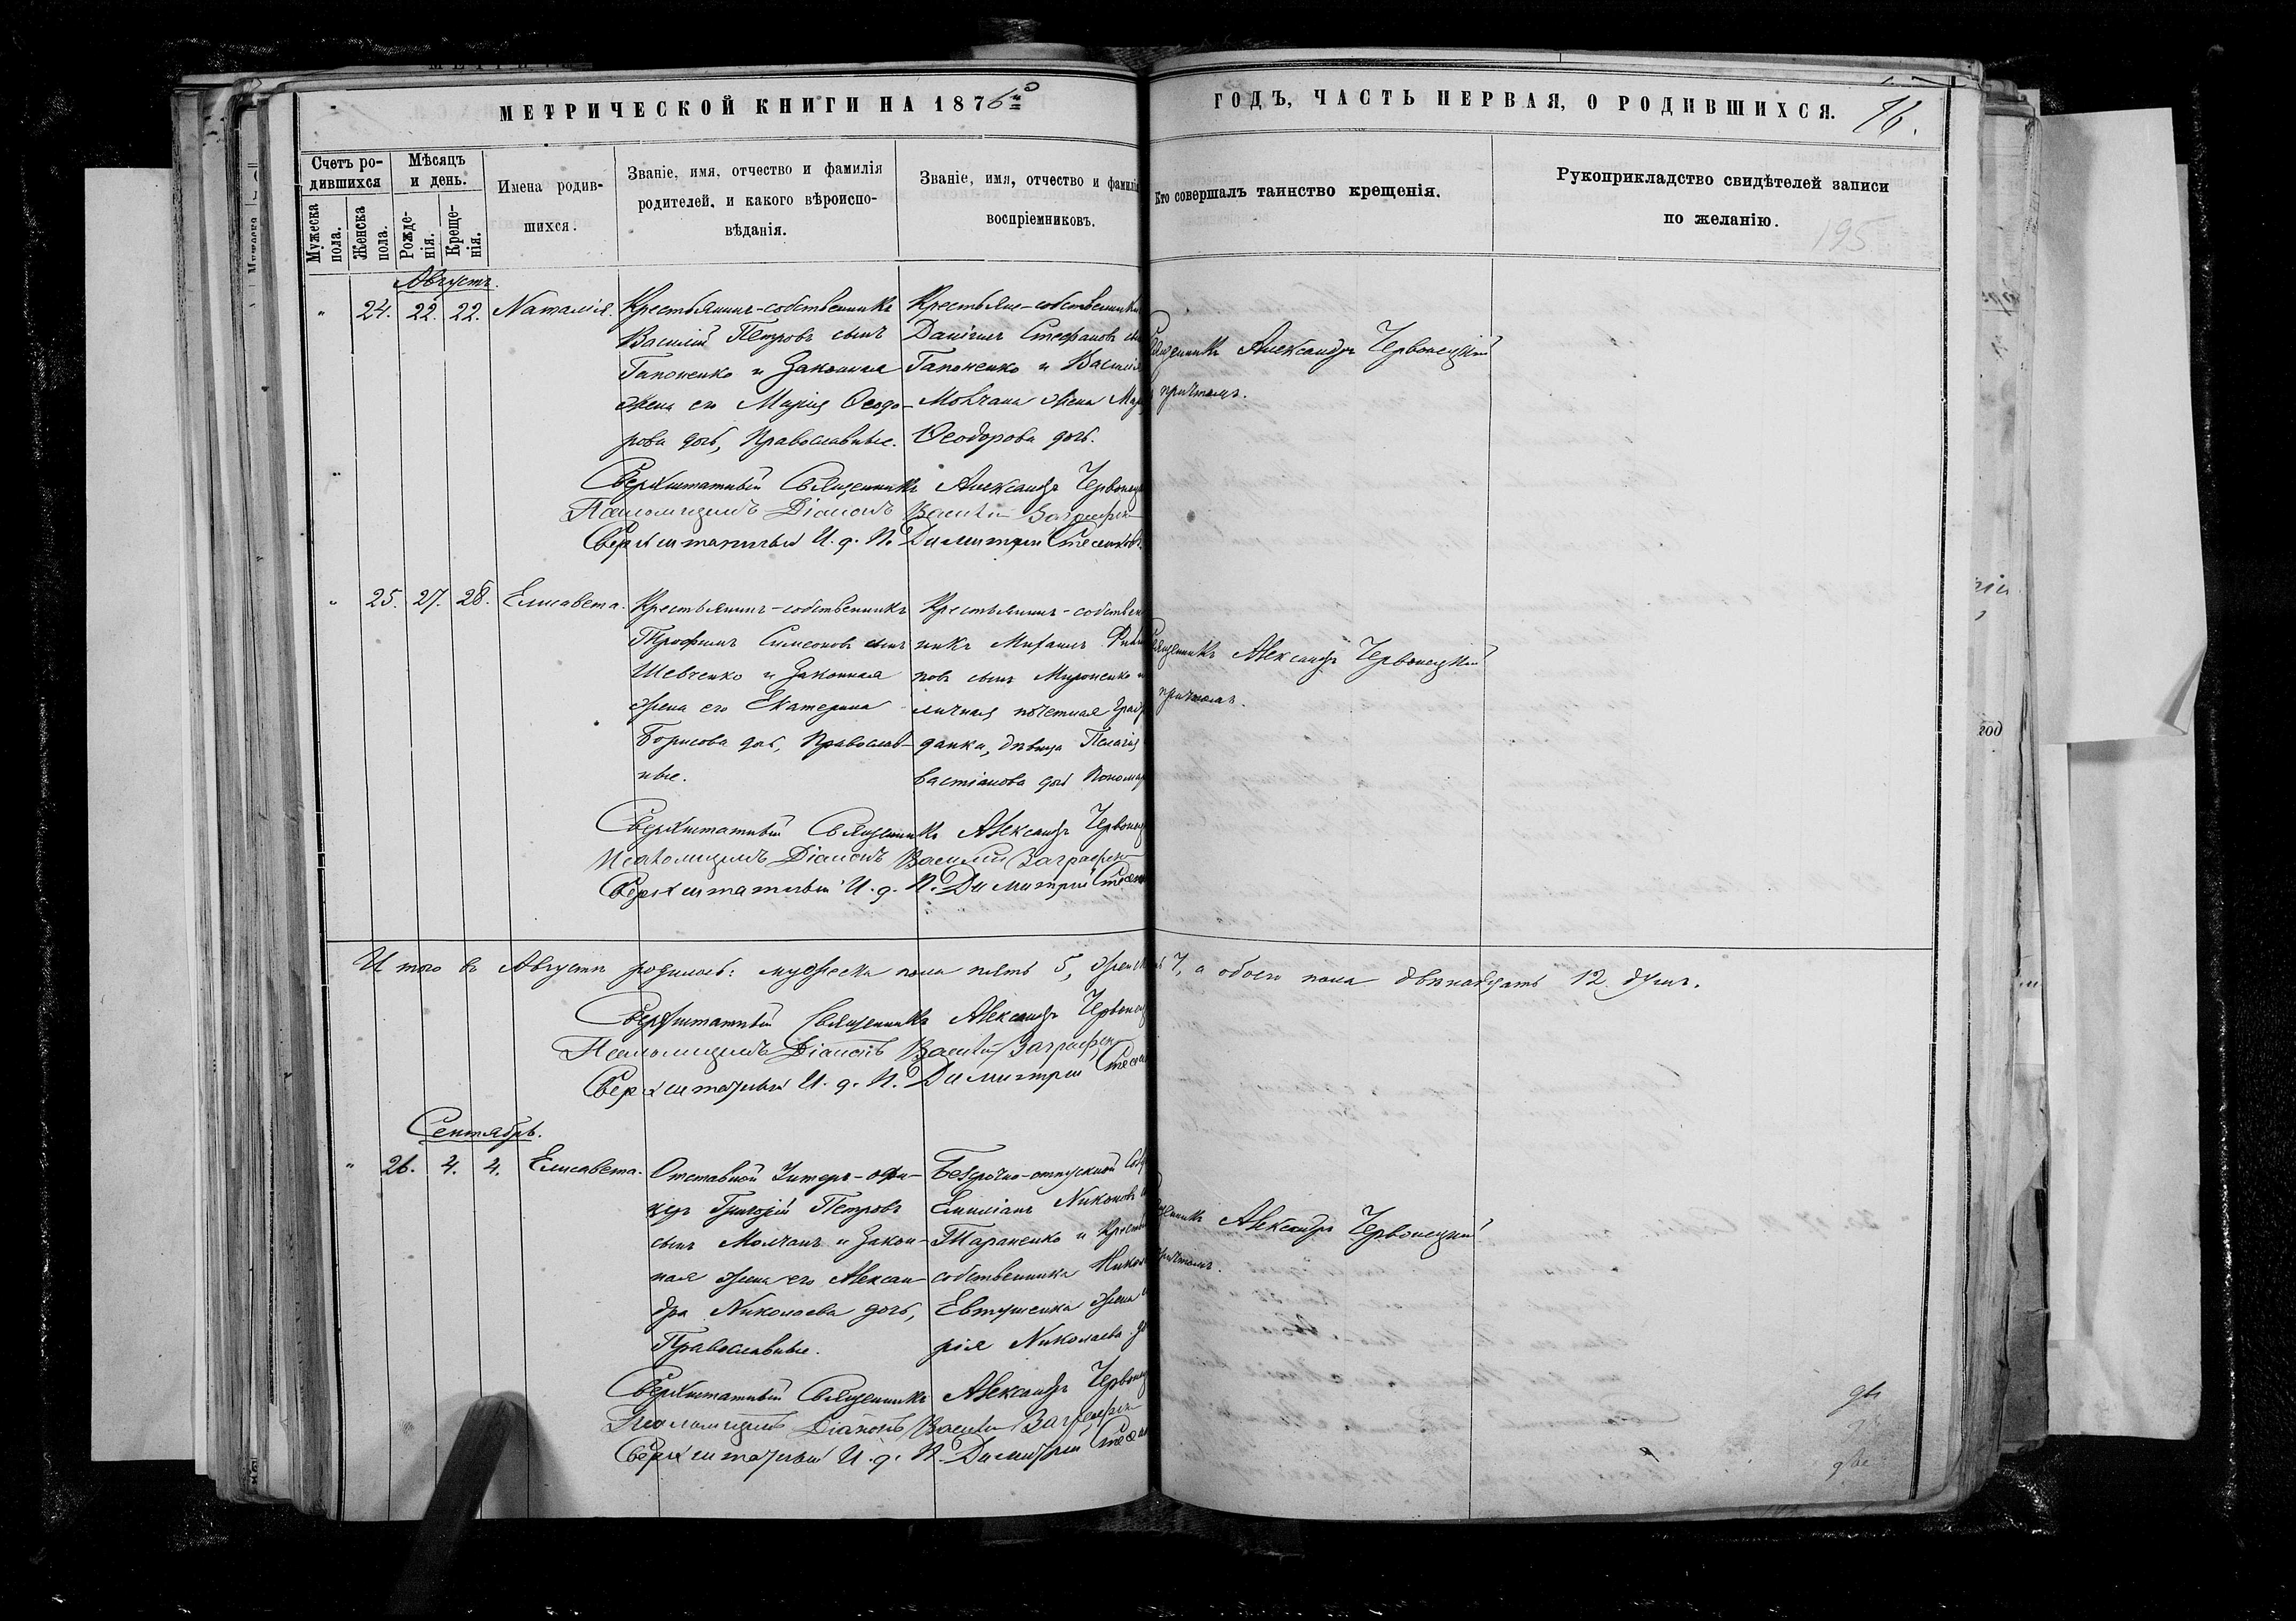 МЕТРИЧЕСКОЙ КНИГИ НА 1876й
ГОДЪ, ЧАСТЬ ПЕРВАЯ, О РОДИВШИХСЯ.
16.
Счетъ ро-
дившихся
Мужеска пола.
Женска пола.
Мѣсяцъ
и день.
Рожде-
нія.
Креще-
нія.
Имена родив-
шихся.
Званіе, имя, отчество и фамилія
родителей, и какого вѣроиспо-
вѣданія.
Званіе, имя, отчество и фамилі
воспріемниковъ.
Кто совершалъ таинство крещенія.
Рукоприкладство свидѣтелей записи
по желанію.
195
Августъ.
" 24. 22. 22. Наталія.
Крестьянинъ-собственникъ
Василій Петровъ сынъ
Гапоненко и законная
жена его Марія Ѳеодо-
рова дочь, Православные.
Крестьяне-собственники
Даніилъ Стефановъ
Гапоненко и Василія
Мовчана жена
Ѳеодорова дочь.
Священникъ Александръ Червонецкій
причтомъ.
Сверхштатный Священникъ Александръ Червонец
Псаломщикъ Діаконъ Василій
Сверхштатный И. д. П. Димитрій
" 25. 27. 28. Елисавета.
Крестьянинъ-собственникъ
Трофимъ Симеоновъ сынъ
Шевченко и законная
жена его Екатерина
Борисова дочь, Православ-
ные.
Крестьянинъ-собствен
никъ Михаилъ
повъ сынъ Мироненко и
личная почетная граж
данка, дѣвица Пелагія
вастіанова дочь Пономар
Священникъ Александръ Червонецкій
причтомъ.
Сверхштатный Священникъ Александръ Червонец
Псаломщикъ Діаконъ Василій
Сверхштатный И. д. П. Димитрій
Итого въ Августѣ родилось: мужеска пола пять 5, женск 7, а обоего пола двѣнадцать 12 душъ.
Сверхштатный Священникъ Александръ Червонец
Псаломщикъ Діаконъ Василій
Сверхштатный И. д. П. Димитрій
Сентябрь.
" 26. 4. 4. Елисавета.
Отставной Унтеръ-офи-
церъ Григорій Петровъ
сынъ Молчанъ и закон-
ная жена его Алексан-
дра Николаева дочь,
Православные.
Безсрочно-отпускной
Емиліанъ Никоновъ
Тараненко и
собственника
Евтушенка жена
рія Николаева
Александръ Червонецкій
причтомъ.
Сверхштатный Священникъ Александръ Червонец
Псаломщикъ Діаконъ Василій
Сверхштатный И. д. П. Димитрій